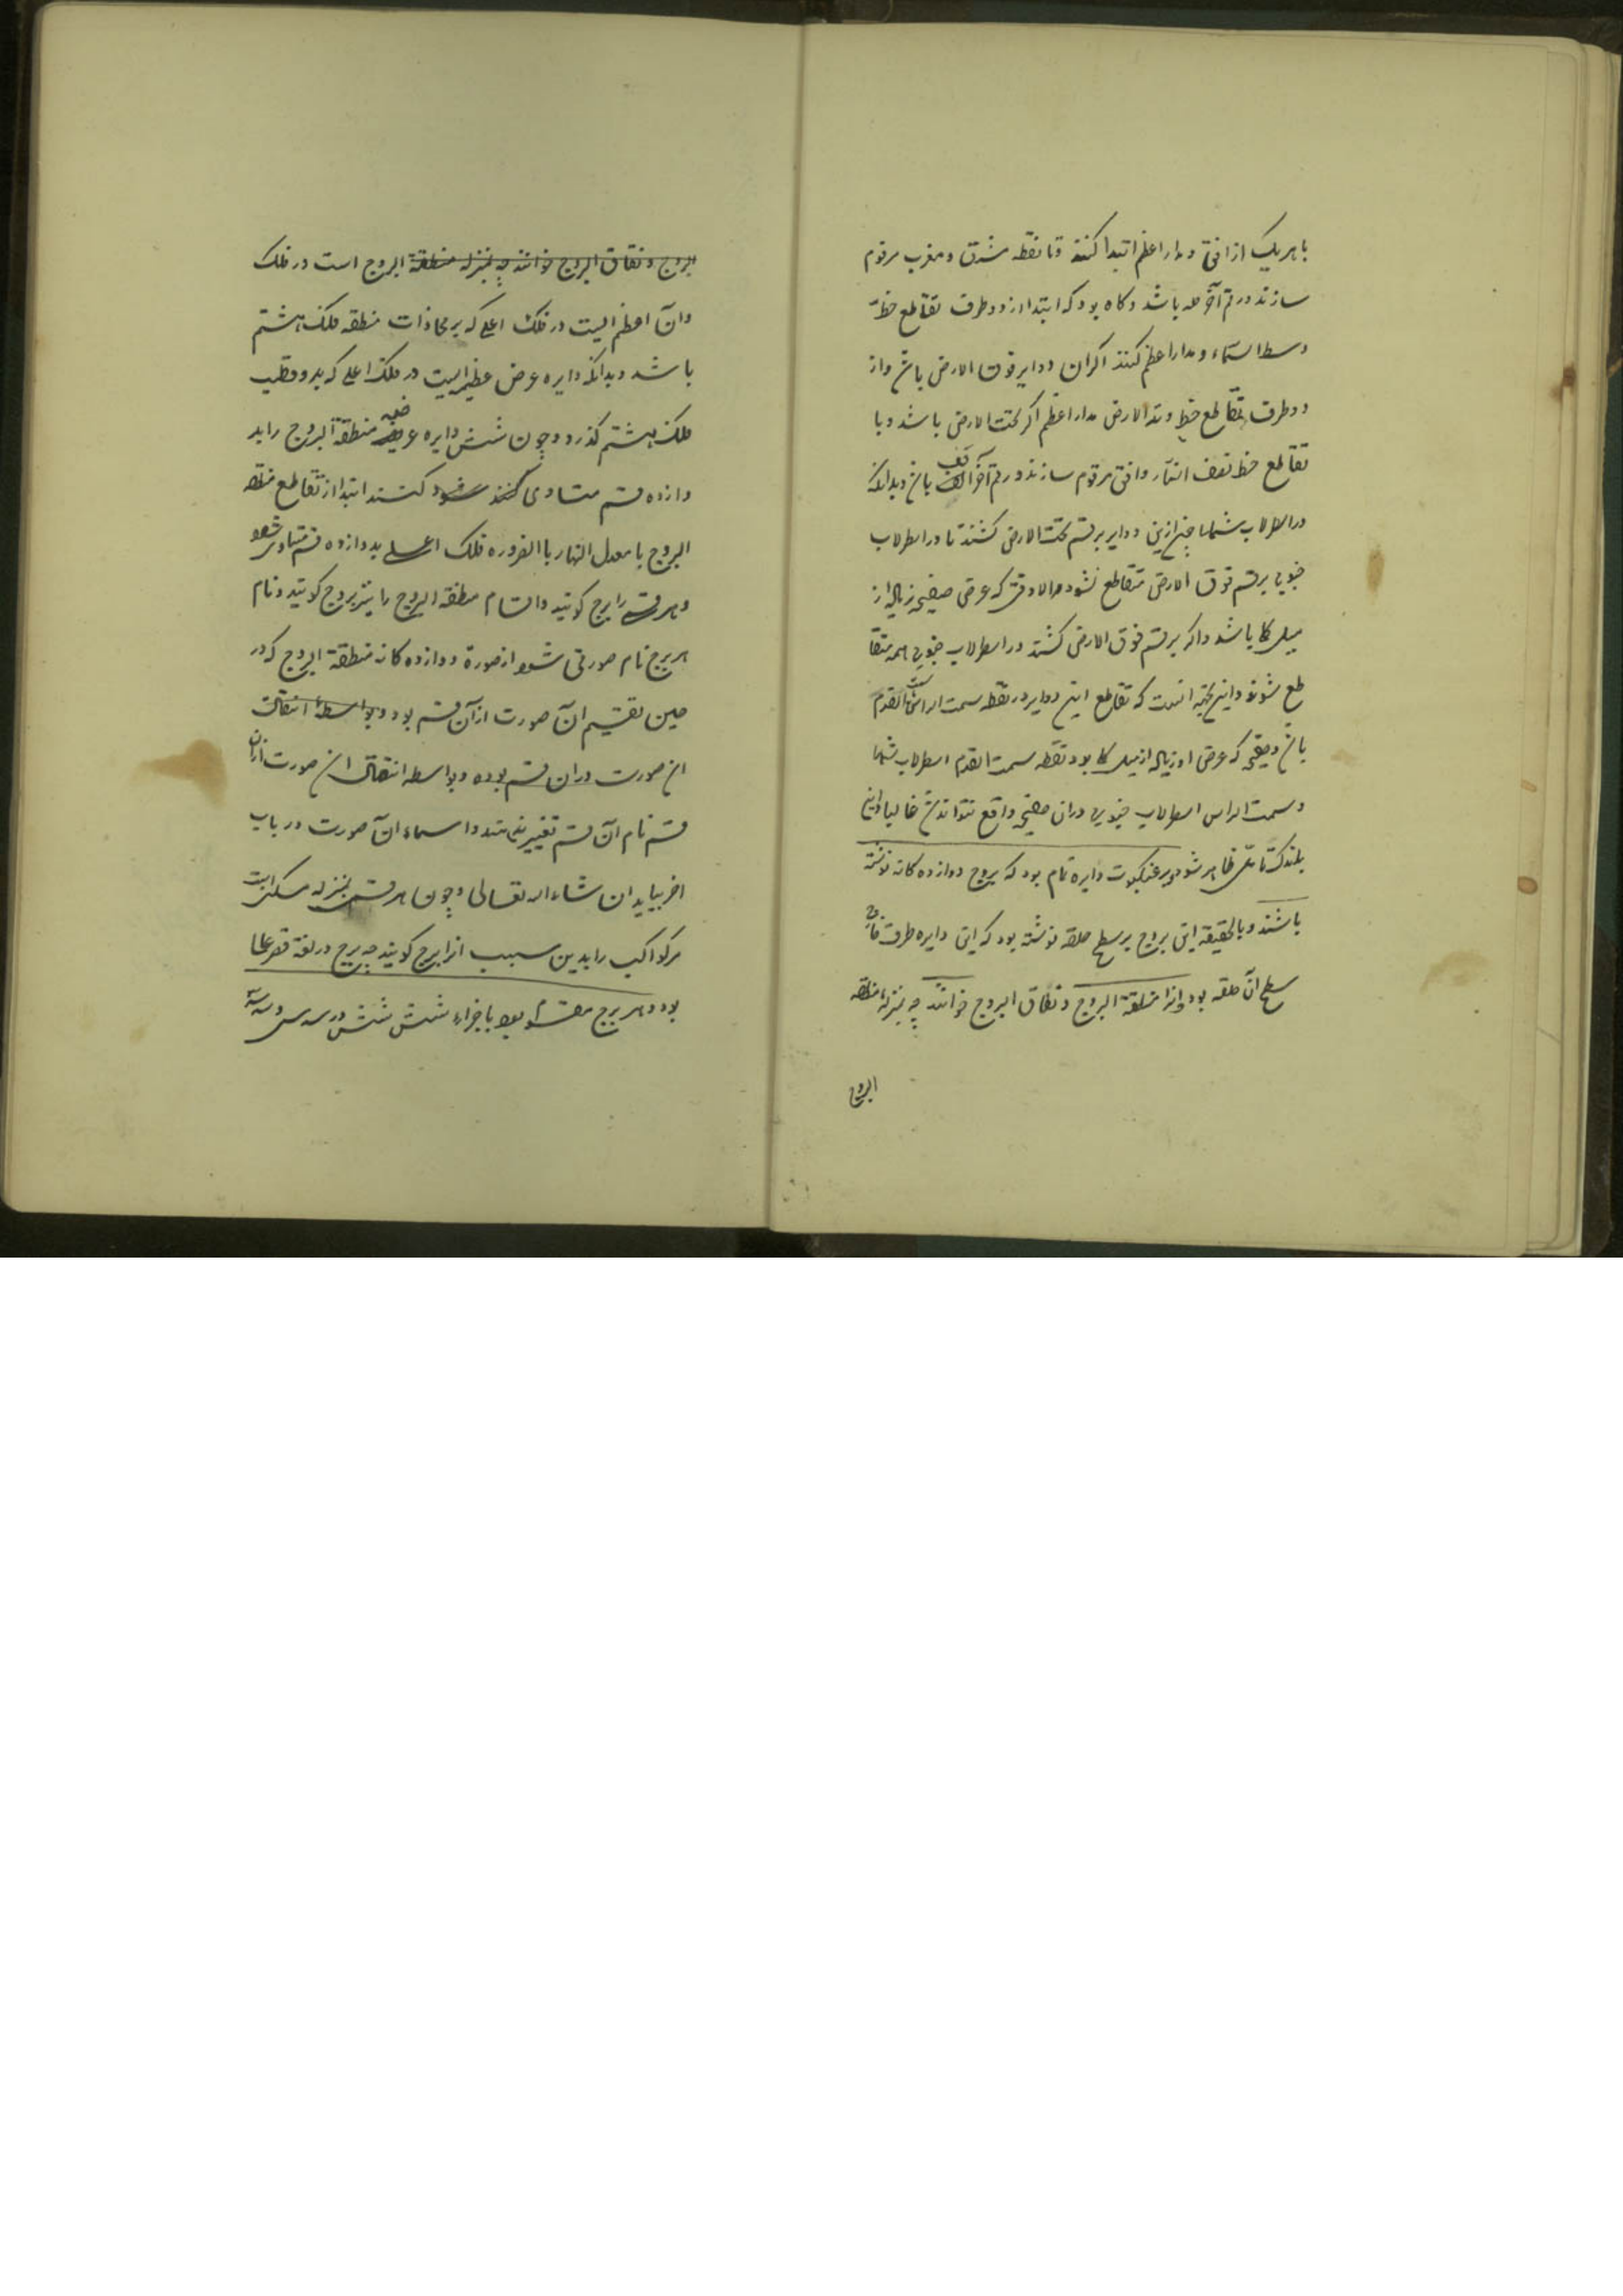 با هریک از افق و مدار اعظم ابتدا کنند و تا نقطه مشرق و مغرب مرقوم
سازند و رقم آخر صه باشد و کاه بود که ابتدا از دو طرف تقاطع خط
وسط السماء و مدار اعظم کنند اکر ان دوایر فوق الارض باش و از
دو طرف تقاطع خط وتد الارض مدار اعظم اکر تحت الارض باشد و با
تقاطع خط نصف النهار و افق مرقوم سازند و رقم آخر قف باش و بدانکه
در اسطرلاب شمالی چون ازین دوایر بر قسم تحت الارض کشند تا در اسطرلاب
جنوبی بر قسم فوق الارض متقاطع نشود الا وقتی که عرض صفیحه زیاده از
میل کلی باشد و اکر بر قسم فوق الارض کشند در اسطرلاب جنوبی همه متقا
طع شوند و این بجهة انست که تقاطع این دوایر در نقطه سمت الراس سمت القدم
باش و صفیحه که عرض او زیاده از میل کلی بود نقطه سمت القدم اسطرلاب شمالی
و سمت الراس اسطرلاب جنوبی دران صفیحه واقع نتواند ش غالبا و این
باندک تاملی ظاهر شود و بر عنکبوت دایره تمام بود که بروج دوازده کانه نوشته
باشند و بالحقیقه این بروج بر سطح حلقه نوشته بود که این دایره طرف خارج
سطح ان حلقه بود و انرا منطقة البروج و نطاق البروج خوانند چه بمنزله منطقه
البروج
البروج و نطاق البروج خوانند چه بمنزله منطقة البروج است در فلک
و آن اعظم ایست در فلک اعلی که بر محاذات منطقه فلک هشتم
باشد و بدانکه دایره عرض عظیمه ایست در فلک اعلی که بدو قطب
فلک هشتم کذرد و چون شش دایره عرضیه منطقة البروج را بد
وازده قسم متساوی کنند ابتدا از تقاطع منطقه
البروج با معدل النهار باالضروره فلک اعلی بدوازده قسم متساوی شود
و هر قسم را برج کویند و اقسام منطقه البروج را نیز بروج کویند و نام
هر برج نام صورتی شود از صورة دوازده کانه منطقة البروج که در
حین تقسیم ان صورت از آن قسم بود و بواسطه انتقال
ان صورت دران قسم بوده و بواسطه انتقال ان صورت ازان
قسم نام آن قسم تغییر نمی یابد و اسماء ان صورت در باب
اخر بیاید ان شاء الله تعالی و چون هر قسم بمنزله مسکن است
مر کواکب را بدین سبب انرا برج کویند چه برج در لغة قصر عالی
بود و هر برج مقسوم بود باجزاء شش شش و سه سه و